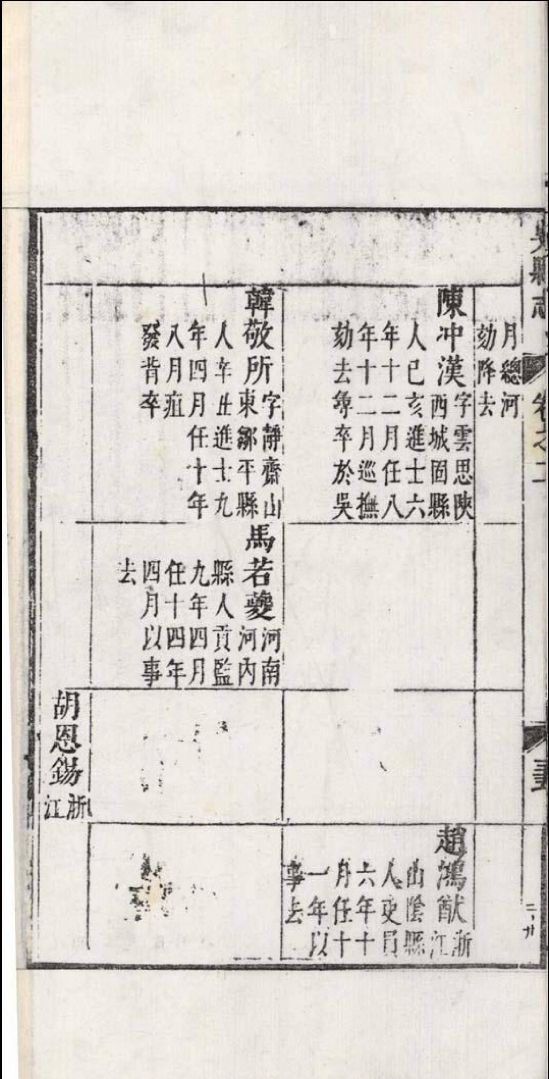 吳縣志
卷之二
月總河
劾降去
陳冲漢字雲思陝
西城固縣
人已亥進士六
年十二月任八
年十二月巡撫
劾去尋卒於吳
趙鴻猷浙
江
山陰縣
人吏員
六年十
月任十
一年以
事去
韓敬所字靜齋山
東鄒平縣
人辛丑進士九
年四月任十年
八月疽
發背卒
馬若夔河南
河內
縣人貢監
九年四月
任十四年
四月以事
去
胡恩錫浙
江